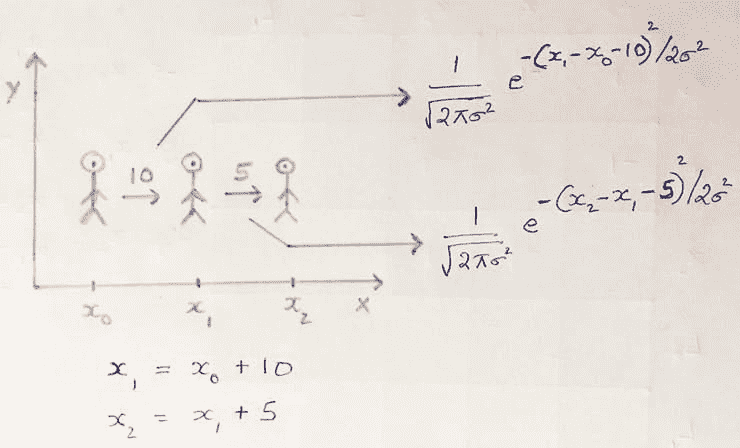 1/√2πσ² e^-(x₁-x₀-10)²/2σ²
y
10 5
1/√2πσ² e^-(x₂-x₁-5)²/2σ²
x₀ x₁ x₂ x
x₁ = x₀ + 10
x₂ = x₁ + 5